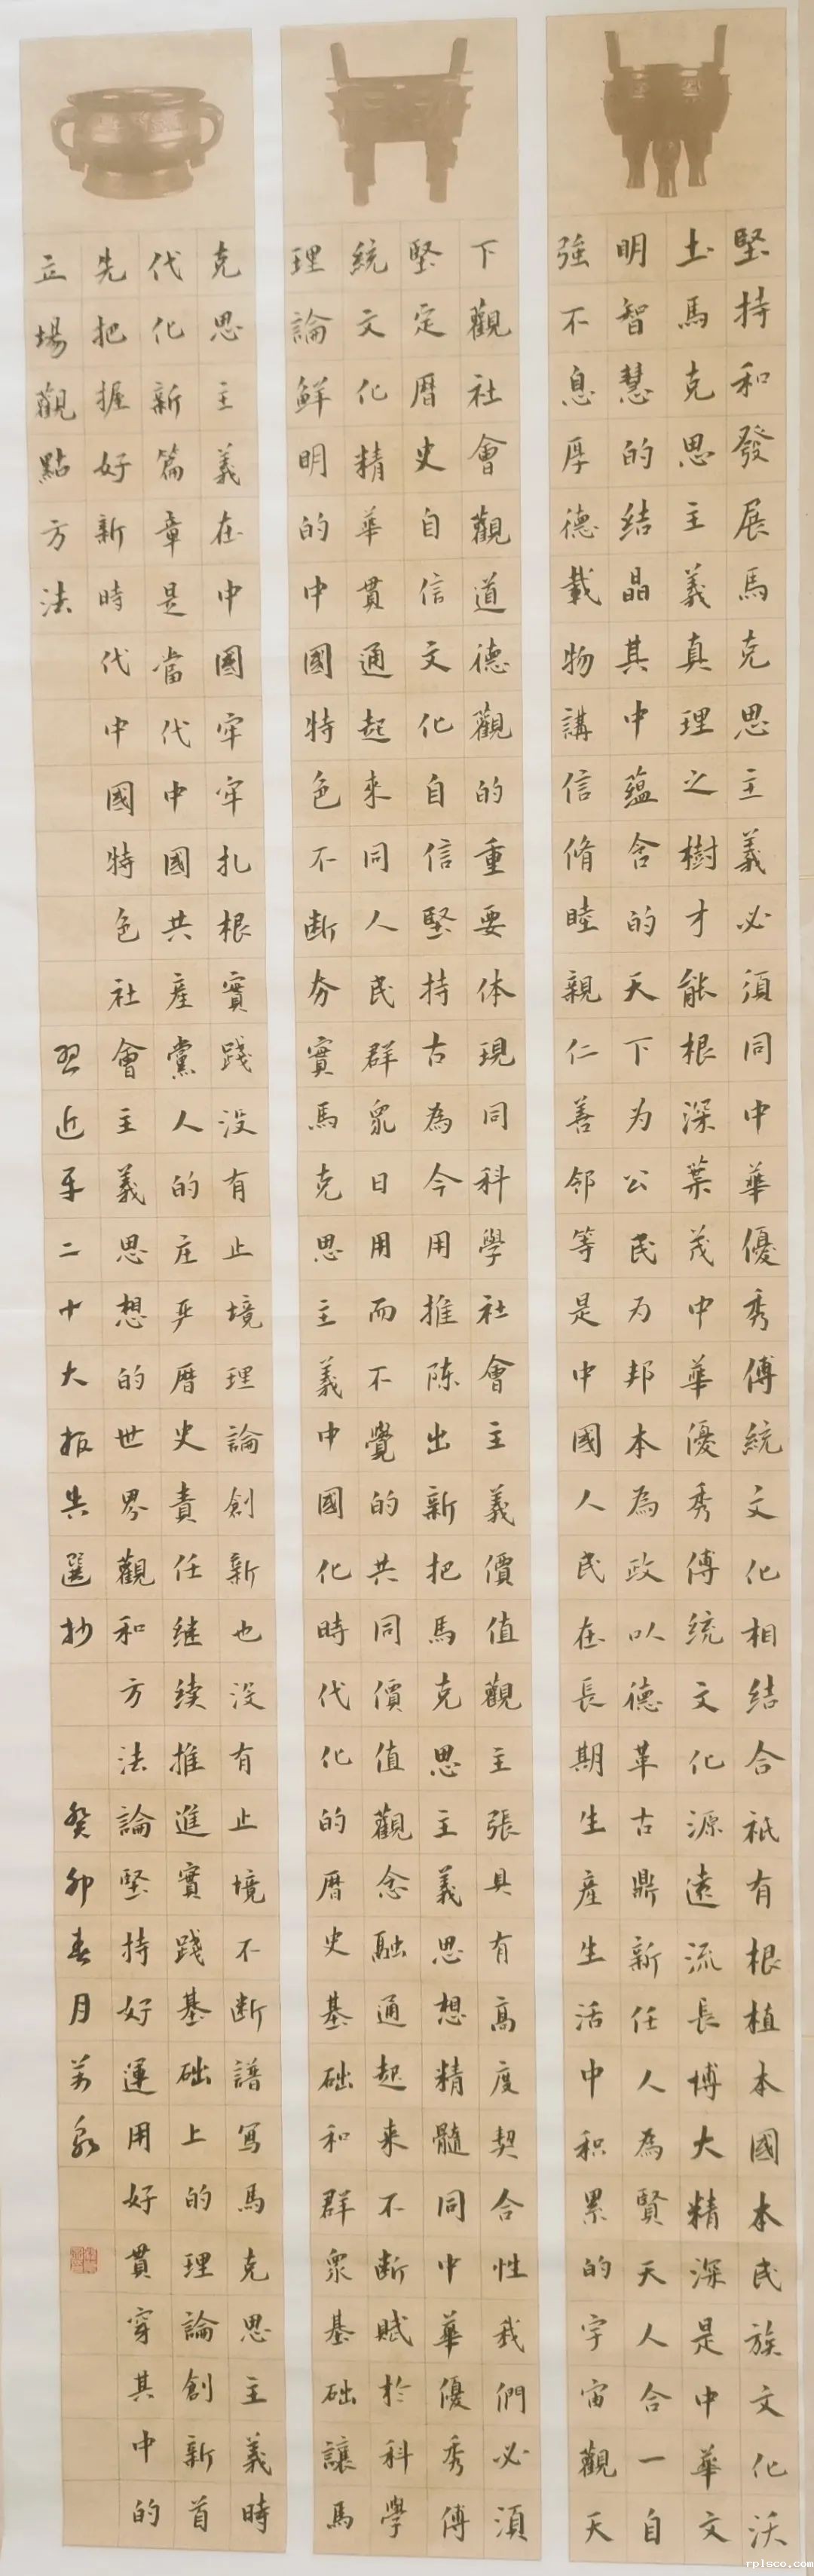 堅持和發展馬克思主義必須同中華優秀傳統文化相結合祇有根植本國本民族文化沃
土馬克思主義真理之樹才能根深葉茂中華優秀傳統文化源遠流長博大精深是中華文
明智慧的結晶其中蘊含的天下为公民为邦本為政以德革古鼎新任人為賢天人合一自
強不息厚德載物講信脩睦親仁善邻等是中國人民在長期生產生活中积累的宇宙觀天
下觀社會觀道德觀的重要体現同科學社會主義價值觀主張具有高度契合性我們必須
堅定曆史自信文化自信堅持古為今用推陈出新把馬克思主義思想精髓同中華優秀傳
統文化精華貫通起來同人民群眾日用而不覺的共同價值觀念融通起來不断賦於科學
理論鮮明的中國特色不断夯實馬克思主義中國化時代化的曆史基础和群眾基础讓馬
克思主義在中國牢牢扎根實踐没有止境理論創新也没有止境不断譜寫馬克思主義時
代化新篇章是當代中國共產黨人的庄严曆史責任继续推進實踐基础上的理論創新首
先把握好新時代中國特色社會主義思想的世界觀和方法論堅持好運用好貫穿其中的
立場觀點方法
習近平二十大报告選抄
癸卯春月
rplsco.com